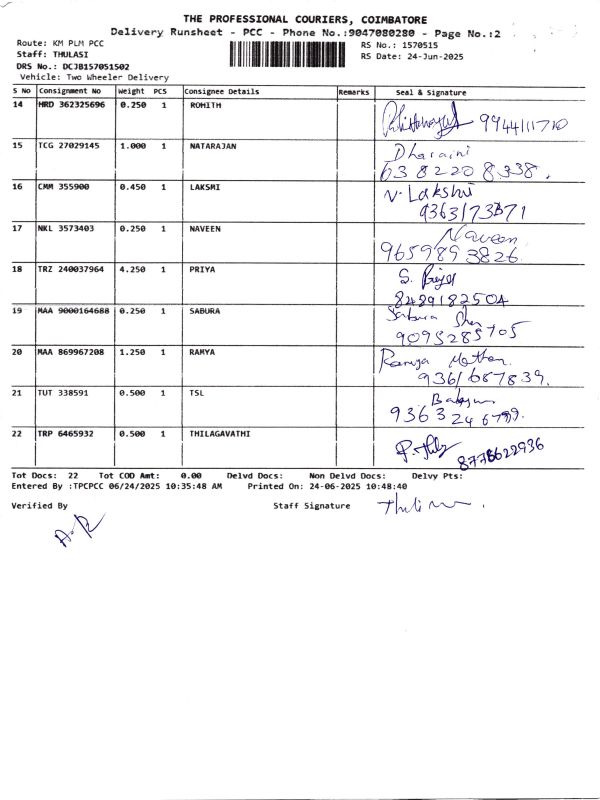 THE PROFESSIONAL COURIERS, COIMBATORE
Delivery Runsheet - PCC - Phone No.:9047080280 - Page No.:2
Route: KM PLM PCC
Staff: THULASI
DRS No.: DCJB157051502
Vehicle: Two Wheeler Delivery
RS No.: 1570515
RS Date: 24-Jun-2025
S No Consignment No Weight PCS Consignee Details Remarks Seal & Signature
14 HRD 362325696 0.250 1 ROHITH
9944111710
15 TCG 27029145 1.000 1 NATARAJAN Dharaini
63 8220 8338.
16 CMM 355900 0.450 1 LAKSMI V. Lakshmi
9363173371
17 NKL 3573403 0.250 1 NAVEEN Naveen
9659893826
18 TRZ 240037964 4.250 1 PRIYA S. Priya
8489182504
19 MAA 9000164688 0.250 1 SABURA Sabura
9095285705
20 MAA 869967208 1.250 1 RAMYA Ramya
9361687839.
21 TUT 338591 0.500 1 TSL
9363246799.
22 TRP 6465932 0.500 1 THILAGAVATHI
8778622936
Tot Docs: 22 Tot COD Amt: 0.00 Delvd Docs: Non Delvd Docs: Delvy Pts:
Entered By :TPCPCC 06/24/2025 10:35:48 AM Printed On: 24-06-2025 10:48:40
Verified By Staff Signature